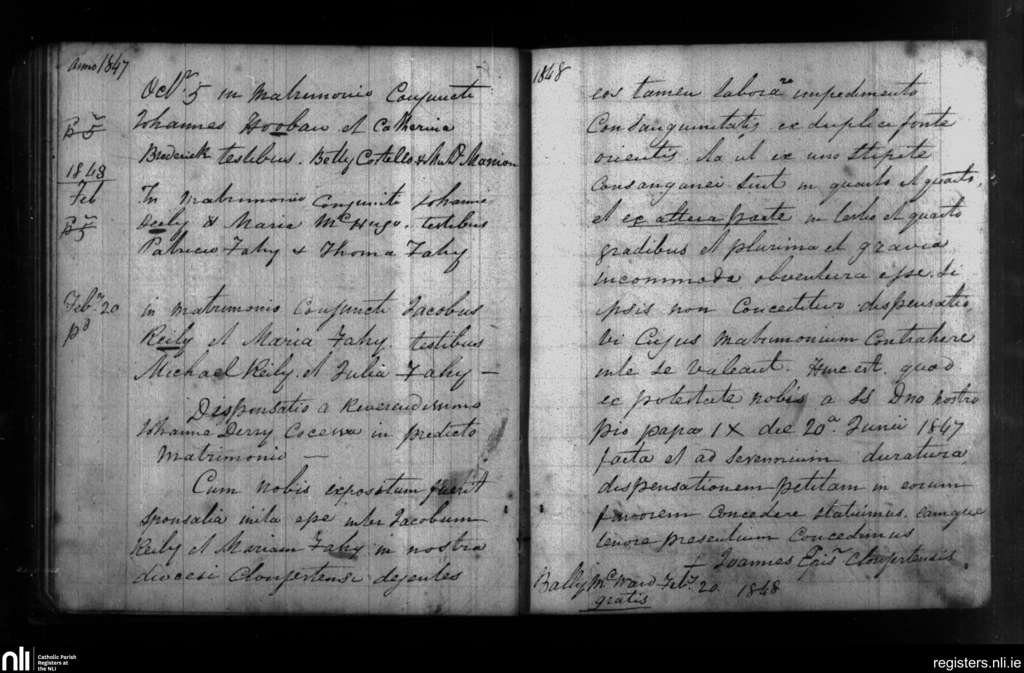 Anno 1847
Octbr 5 in Matrimonio Conjuncti
Johannes Hooban et Catherina
Broderick testibus. Betty Costello & Manion
1848
Feb
In Matrimonio Conjuncti Johannes
Reily & Maria McHugo. testibus
Patricio Fahy & Thoma Fahy
Feby 20
pd
in matrimonio Conjuncti Jacobus
Reily et Maria Fahy. testibus
Michael Reily et Julia Fahy —
Dispensatio a Reverendissimo
Johanne Derry Concessa in predicto
Matrimonio —
Cum nobis expositum fuerit
Sponsalia inita esse inter Jacobum
Reily et Mariam Fahy in nostra
diocesi Clonfertensi degentes
1848
eos tamen laborare impedimento
Consanguinitatis ex duplici fonte
orientis. Ita ut ex uno Stipite
Consanguinei Sint in quarto et quarto,
et ex altera parte in tertio et quarto
gradibus et plurima et gravia
incommoda obventura esse. Si
ipsis non Concedatur dispensatio
vi Cujus Matrimonium Contrahere
inter Se Valeant. Hinc est. quod
ex potestate nobis a SS Dno nostro
Pio papa IX die 20a. Junii 1847
facta et ad Sexennium duratura
dispensationem petitam in eorum
favorem Concedere statuimus. eamque
tenore presentium Concedimus
+ Joannes Clonfertensis
Bally McWard Feby. 20. 1848
gratis
nli
Catholic Parish
Registers at
the NLI
registers.nli.ie